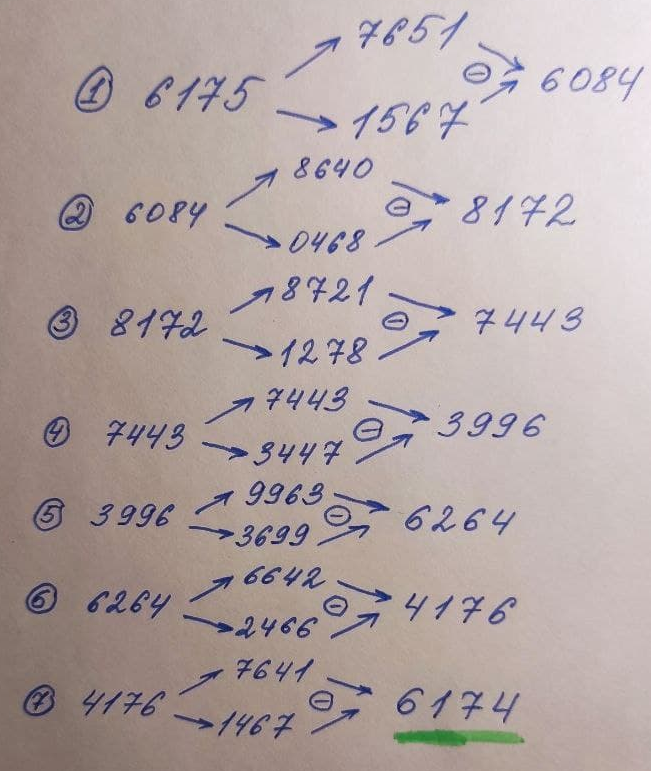 7651
① 6175 ⊖ 6084
1567
8640
② 6084 ⊖ 8172
0468
8721
③ 8172 ⊖ 7443
1278
7443
④ 7443 ⊖ 3996
3447
9963
⑤ 3996 ⊖ 6264
3699
6642
⑥ 6264 ⊖ 4176
2466
7641
⑦ 4176 ⊖ 6174
1467